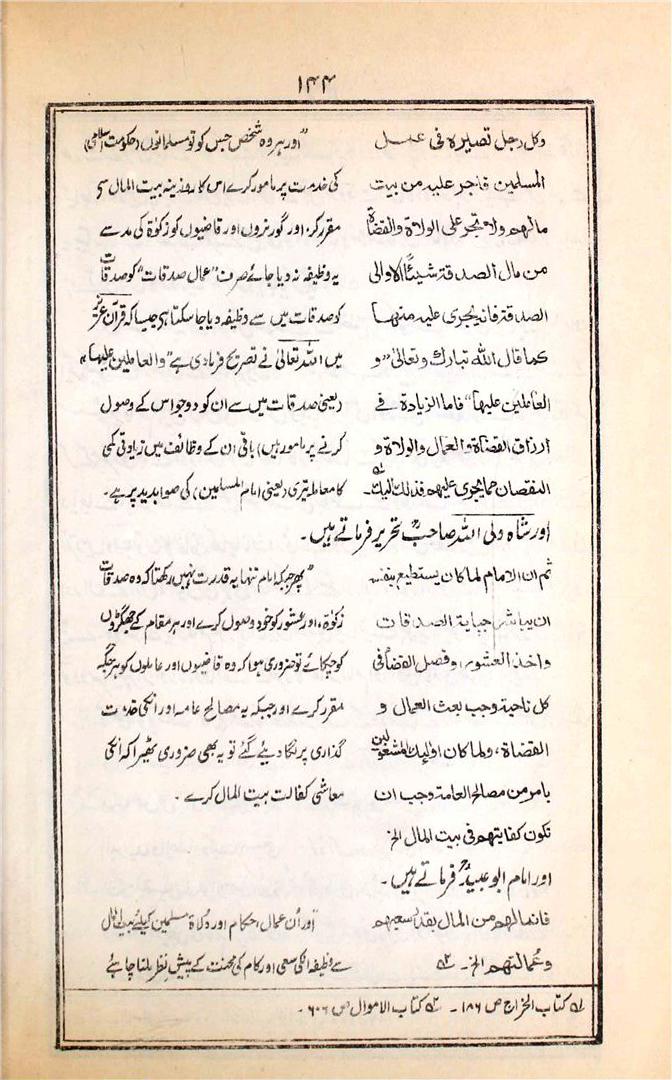 ۱۴۴
وكل رجل تصيره فى عمل
المسلمين فاجر عليه من بيت
مالهم ولا تجر على الولاة والقضاة
من مال الصدقة شيئًا الا والى
الصدقة فانه يجرى عليه منها
كما قال الله تبارك وتعالىٰ "و
العاملين عليها" فاما الزيادة فى
ارزاق القضاة والعمال والولاة و
النقصان مما يجرى عليهم فذلك اليك۔ ؎۱
"اور ہر وہ شخص جس کو تو مسلمانوں (حکومت اسلامی)
کی خدمت پر مامور کرے اس کا روزینہ بیت المال سی
مقرر کر، اور گورنروں اور قاضیوں کو زکوٰۃ کی مد سے
یہ وظیفہ نہ دیا جائے صرف "عمال صدقات" کو صدقات
کو صدقات میں سے وظیفہ دیا جا سکتا ہی جیسا کہ قرآن عزیز
میں اللہ تعالیٰ نے تصریح فرما دی ہے "والعاملین علیہا"
(یعنی صدقات میں سے ان کو دو جو اس کے وصول
کرنے پر مامور ہیں) باقی ان کے وظائف میں زیادتی کمی
کا معاملہ تیری (یعنی امام المسلمین) کی صوابدید پر ہے۔
اور شاہ ولی اللہ صاحبؒ تحریر فرماتے ہیں۔
ثم ان الامام لما كان يستطيع بنفسه
ان يباشر جباية الصدقات
واخذ العشور، وفصل القضا فى
كل ناحية وجب بعث العمال و
القضاة، ولما كان اولٰٓيك المشغولين
بامر من مصالح العامة وجب ان
تكون كفايتهم فى بيت المال الخ
"پھر جبکہ امام تنہا یہ قدرت نہیں رکھتا کہ وہ صدقات
زکوٰۃ، اور عشور کو خود وصول کرے اور ہر مقام کے جھگڑوں
کو چکائے تو ضروری ہوا کہ وہ قاضیوں اور عاملوں کو ہر جگہ
مقرر کرے اور جبکہ یہ مصالح عامہ اور انکی خدمت
گذاری پر لگا دیئے گئے تو یہ بھی ضروری ٹھیرا کہ انکی
معاشی کفالت بیت المال کرے۔
اور امام ابو عبیدؒ فرماتے ہیں۔
فانما لهم من المال بقدر سعيهم
وعُمالتهم الخ۔ ؎۲
"اور اُن عمال، حکام اور ولاۃ مسلمین کیلئے بیت المال
سے وظیفہ انکی سعی اور کام کی محنت کے پیش نظر ملنا چاہئے
؎۱ کتاب الخراج ص ۱۸۶۔ ؎۲ کتاب الاموال ص ۶۰۶۔